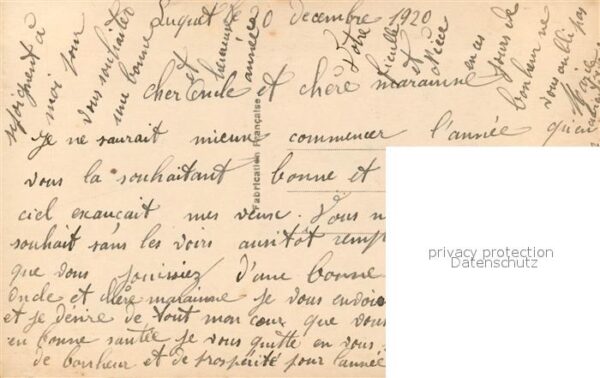 Luquet le 30 decembre 1920
cher Oncle et chère marainne
Je ne saurait mieux commencer l'année qu'en
vous la souhaitant bonne et
ciel exauçait mes veux. Vous n
souhait sans les voirs ausitôt remp
que vous jouissiez d'une bonne
Oncle et chère marainne je vous envoie
et je désire de tout mon cœur que vous
en bonne santée je vous quitte en vous
de bonheur et de prospérité pour l'année
sejoignent à
moi pour
vous souhaiter
une bonne
et heureuse
année
Votre
filleule
et Nièce
en ces
jours de
bonheur ne
vous oubli pas
Marie
Fabrication Française
privacy protection
Datenschutz